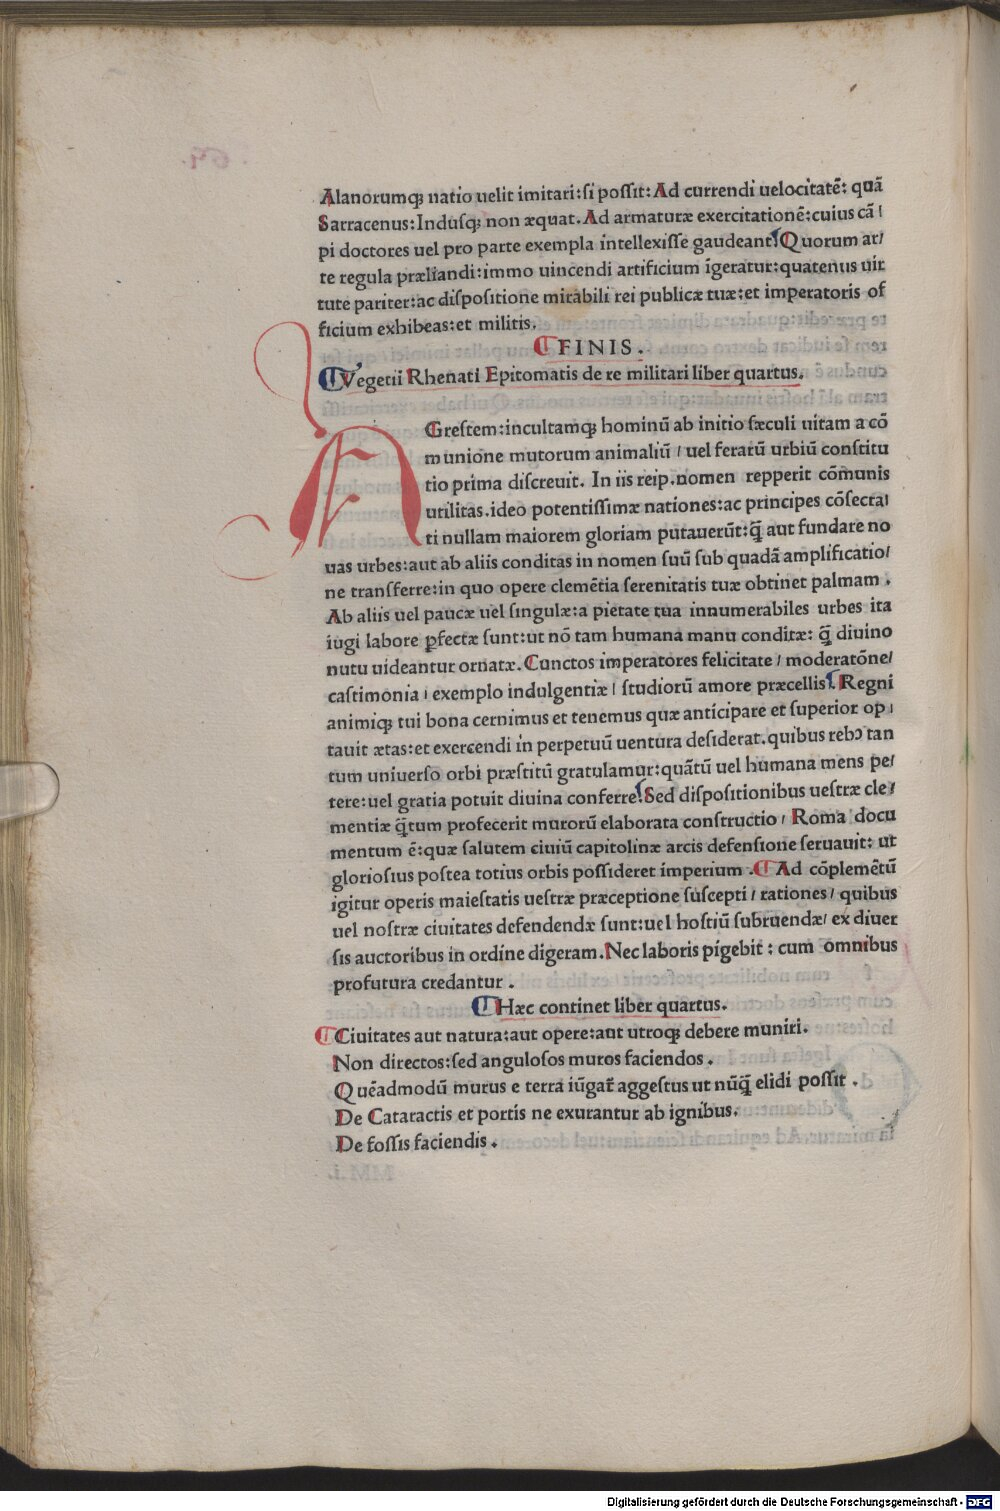 Alanorumq; natio uelit imitari: si possit: Ad currendi uelocitatē: quā
Sarracenus: Indusq; non æquat. Ad armaturæ exercitationē: cuius cā/
pi doctores uel pro parte exempla intellexisse gaudeant. Quorum ar/
te regula præliandi: immo uincendi artificium īgeratur: quatenus uir
tute pariter: ac dispositione mirabili rei publicæ tuæ: et imperatoris of
ficium exhibeas: et militis.
FINIS.
Vegetii Rhenati Epitomatis de re militari liber quartus.
AGrestem: incultamq; hominū ab initio sæculi uitam a cō
munione mutorum animaliū / uel ferarū urbiū constitu
tio prima discreuit. In iis reip. nomen repperit cōmunis
utilitas. ideo potentissimæ nationes: ac principes cōsecra/
ti nullam maiorem gloriam putauerūt: q̄ aut fundare no
uas urbes: aut ab aliis conditas in nomen suū sub quadā amplificatio/
ne transferre: in quo opere clemētia serenitatis tuæ obtinet palmam.
Ab aliis uel paucæ uel singulæ: a pietate tua innumerabiles urbes ita
iugi labore ꝑfectæ sunt: ut nō tam humana manu conditæ: q̄ diuino
nutu uideantur ornatæ. Cunctos imperatores felicitate / moderatōne/
castimonia / exemplo indulgentiæ / studiorū amore præcellis. Regni
animiq; tui bona cernimus et tenemus quæ anticipare et superior op/
tauit ætas: et exercendi in perpetuū uentura desiderat. quibus rebꝰ tan
tum uniuerso orbi præstitū gratulamur: quātū uel humana mens pe/
tere: uel gratia potuit diuina conferre. Sed dispositionibus uestræ cle/
mentiæ q̄tum profecerit murorū elaborata constructio / Roma docu
mentum ē: quæ salutem ciuiū capitolinæ arcis defensione seruauit: ut
gloriosius postea totius orbis possideret imperium. Ad cōplemētū
igitur operis maiestatis uestræ præceptione suscepti / rationes / quibus
uel nostræ ciuitates defendendæ sunt: uel hostiū subruendæ / ex diuer
sis auctoribus in ordine digeram. Nec laboris pigebit: cum omnibus
profutura credantur.
Hæc continet liber quartus.
Ciuitates aut natura: aut opere: aut utroq; debere muniri.
Non directos: sed angulosos muros faciendos.
Quēadmodū murus e terra iūgat̄ aggestus ut nūq̄ elidi possit.
De Cataractis et portis ne exurantur ab ignibus.
De fossis faciendis.
Digitalisierung gefördert durch die Deutsche Forschungsgemeinschaft - DFG